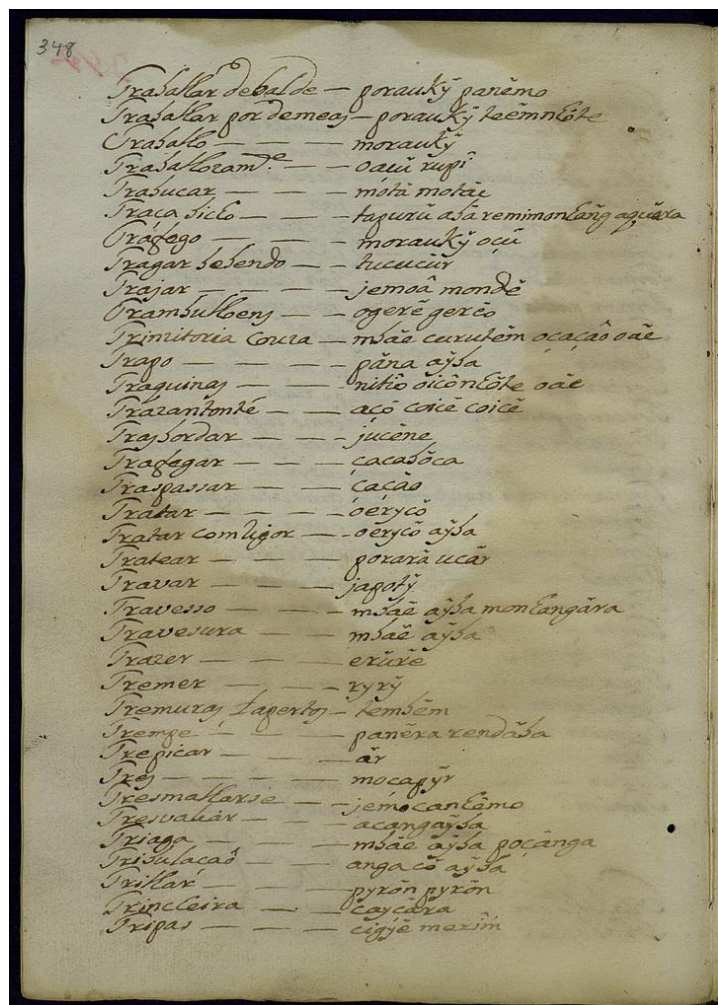 348
Trabalhar debalde — porauký panẽmo
Trabalhar por demeas — porauký teẽm nhõte
Trabalho — — — morauký
Trabalhozam.te — — oacû rupî
Trabucar — — — motá motác
Traça bicho — — tapurú abá remimonhang aguára
Tráfego — — — morauký oçú
Tragar bebendo — — tucucúr
Trajar — — — — jemoâ mondé
Trambulhoens — — ogeré geréo
Trinzitoria couza — mbaé curutém oçaçáo oáe
Trapo — — — — pána aýba
Traquinas — — — nitîo oicô nhóte oáe
Trazantonté — — açó coicé coicé
Trasbordar — — — jucéne
Trafegar — — — cacabóca
Traspassar — — — çaçáo
Tratar — — — — oérycó
Tratar com Rigor — — oérycó aýba
Tratear — — — porará ucár
Travar — — — japotý
Travesso — — — mbaé aýba monhangára
Travesura — — — mbaé aýba
Trazer — — — erúré
Tremer — — — ryrý
Tremuras — tembém
Trempe — — — panéra rendába
Trepicar — — ár
Tres — — — — moçapýr
Tresmalharse — — jemocanhémo
Tresvaliár — — acangaýba
Triaga — — — mbaé aýba poçánga
Tribulacaô — — anga có aýba
Trilhar — — — pyrón pyrón
Trincheira — — caycára
Tripas — — — cigýé merîm